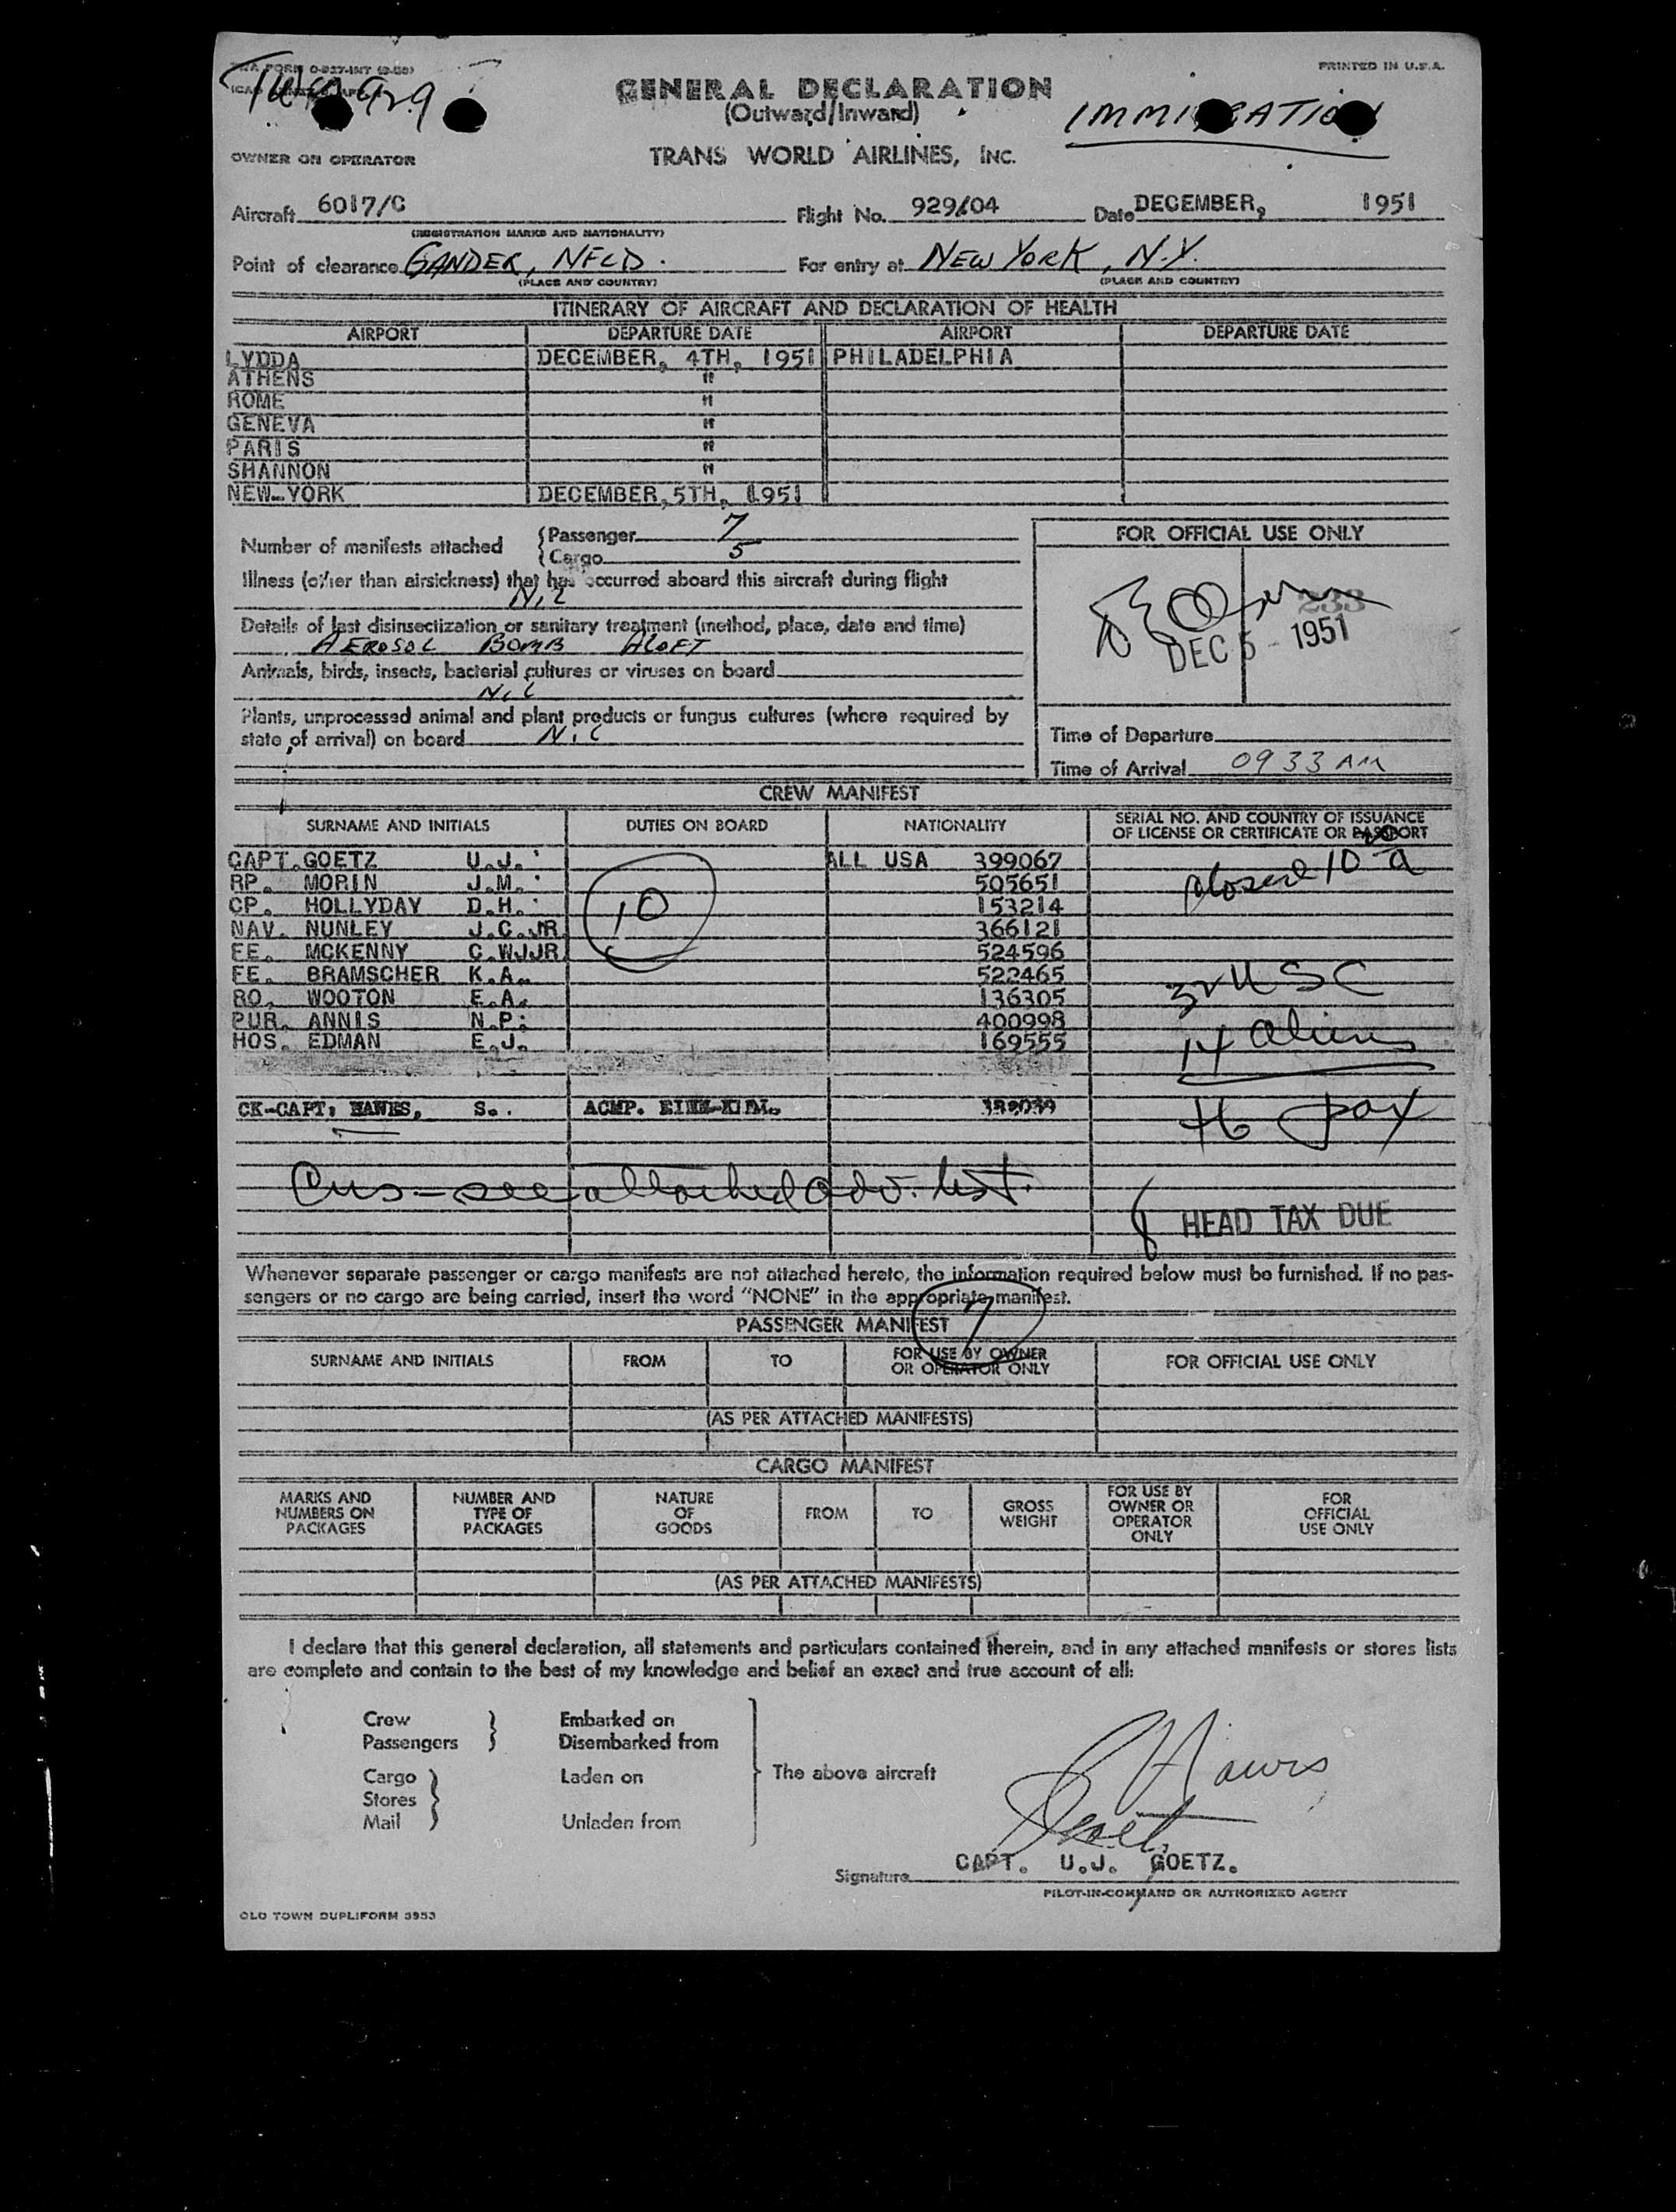 TWA 929
TWA FORM O-927-INT
PRINTED IN U.S.A.
GENERAL DECLARATION
(Outward/Inward)
IMMIGRATION
OWNER OR OPERATOR
TRANS WORLD AIRLINES, INC.
Aircraft 6017/C Flight No. 929/04 Date DECEMBER, 1951
(REGISTRATION MARKS AND NATIONALITY)
Point of clearance GANDER, NFLD. For entry at NEW YORK, N.Y.
(PLACE AND COUNTRY) (PLACE AND COUNTRY)
ITINERARY OF AIRCRAFT AND DECLARATION OF HEALTH
AIRPORT DEPARTURE DATE AIRPORT DEPARTURE DATE
LYDDA DECEMBER, 4TH, 1951 PHILADELPHIA
ATHENS "
ROME "
GENEVA "
PARIS "
SHANNON "
NEW-YORK DECEMBER,5TH, 1951
Number of manifests attached { Passenger 7
{ Cargo 5
FOR OFFICIAL USE ONLY
233
DEC 5 - 1951
Illness (other than airsickness) that has occurred aboard this aircraft during flight
NiL
Details of last disinsectization or sanitary treatment (method, place, date and time)
AEROSOL BOMB ALOFT
Animals, birds, insects, bacterial cultures or viruses on board
NiL
Plants, unprocessed animal and plant products or fungus cultures (where required by
state of arrival) on board NiL
Time of Departure
Time of Arrival 0933 AM
CREW MANIFEST
SURNAME AND INITIALS DUTIES ON BOARD NATIONALITY SERIAL NO. AND COUNTRY OF ISSUANCE
OF LICENSE OR CERTIFICATE OR PASSPORT
CAPT. GOETZ U.J. ALL USA 399067 closed 10 20 a
RP. MORIN J.M. 505651
CP. HOLLYDAY D.H. 10 153214
NAV. NUNLEY J.C.JR. 366121
FE. MCKENNY C.W.JJR 524596
FE. BRAMSCHER K.A. 522465
RO. WOOTON E.A. 136305 32 USC
PUR. ANNIS N.P. 400998
HOS. EDMAN E.J. 169555 14 aliens
CK-CAPT: HAWES, S.. ACMP. 46 pax
Cus - see attached adv. list.
HEAD TAX DUE
Whenever separate passenger or cargo manifests are not attached hereto, the information required below must be furnished. If no pas-
sengers or no cargo are being carried, insert the word "NONE" in the appropriate manifest.
7
PASSENGER MANIFEST
SURNAME AND INITIALS FROM TO FOR USE BY OWNER
OR OPERATOR ONLY FOR OFFICIAL USE ONLY
(AS PER ATTACHED MANIFESTS)
CARGO MANIFEST
MARKS AND
NUMBERS ON
PACKAGES NUMBER AND
TYPE OF
PACKAGES NATURE
OF
GOODS FROM TO GROSS
WEIGHT FOR USE BY
OWNER OR
OPERATOR
ONLY FOR
OFFICIAL
USE ONLY
(AS PER ATTACHED MANIFESTS)
I declare that this general declaration, all statements and particulars contained therein, and in any attached manifests or stores lists
are complete and contain to the best of my knowledge and belief an exact and true account of all:
Crew Embarked on
Passengers Disembarked from
Cargo Laden on The above aircraft
Stores
Mail Unladen from
Hawes
Goetz
Signature CAPT. U.J. GOETZ.
PILOT-IN-COMMAND OR AUTHORIZED AGENT
OLD TOWN DUPLIFORM 3953